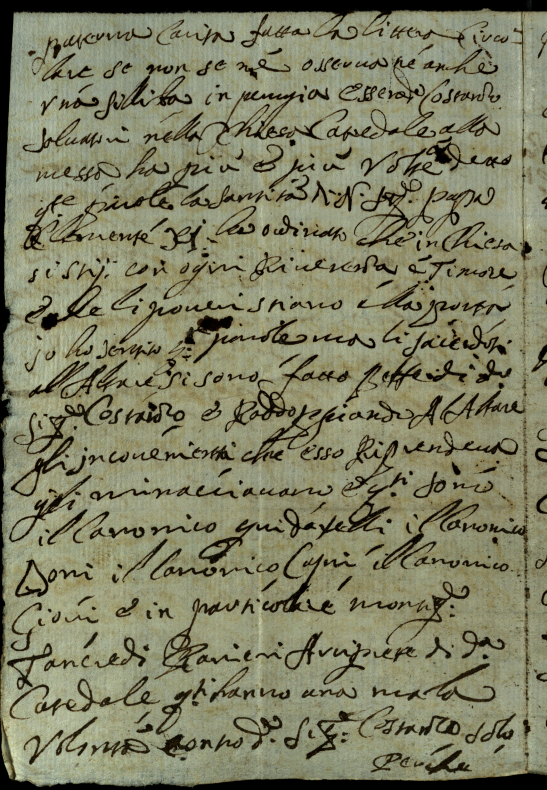 paterna Carita fatta la littera Circo=
lare se non se né osserua né anché
vna silliba in perugia essendo Costanzo
saluatori nella Chiesa Catedale alla
messa ha più è più Volte detto
q.te parole la santità N. N. Sig.r pappa
Clementé XI. ha ordinato che in Chiesa
si stij. con ogni Riuerenza é Timore
é che li poueri stiano alla porta
jo ho sentito q.te parole ma li sacerdoti
all Altare si sono fatto Beffe di do
Sig.r Costanzo é Raddoppiando Al Altare
gli jnconuénienti che esso Riprendeua
gli minacciauano é q.ti sono
il Canonico guidarelli il Canonico
Doni il Canonico Capri il Canonico
Gioui é in particolaré mons.r
Tancredi Ranieri Arciprete di d.a
Catedale q.ti hanno una mala
Volontà contro d.o Sig.r Costanzo solo
Perche